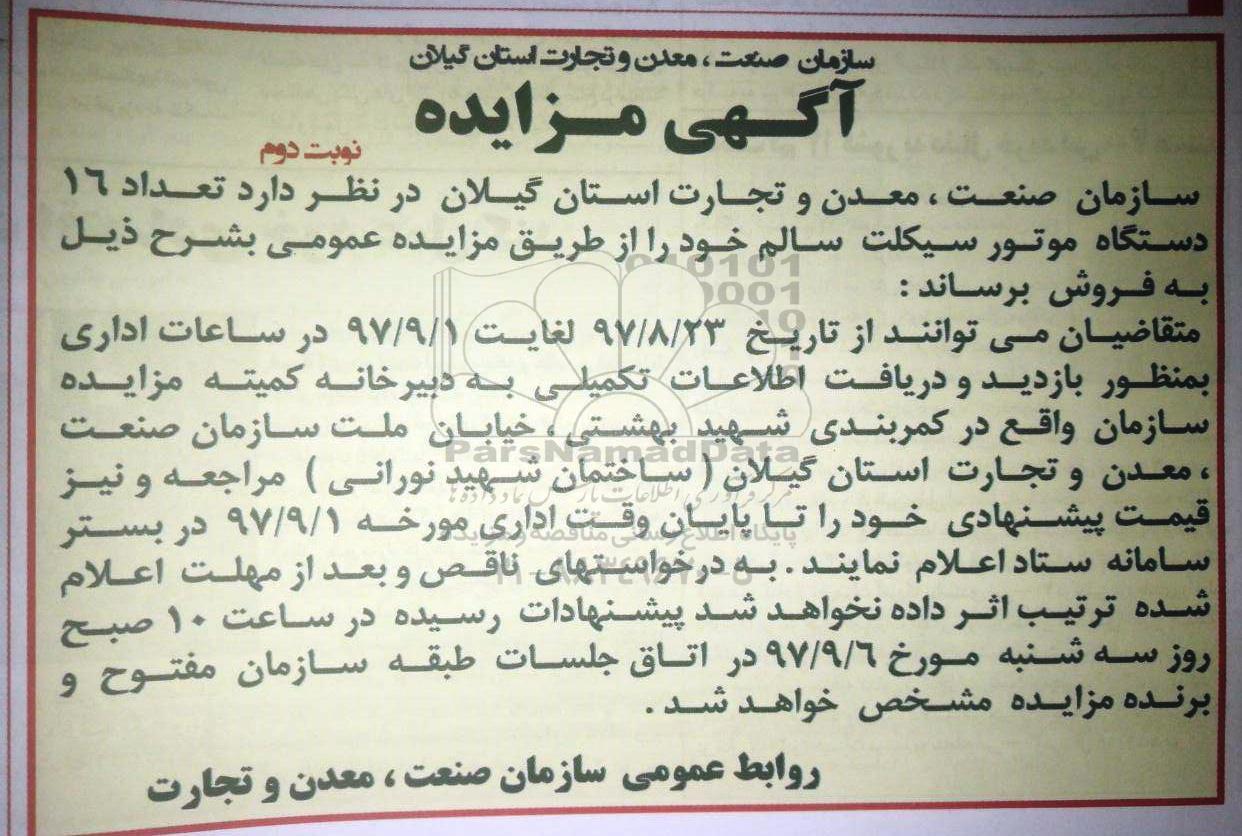 سازمان صنعت، معدن و تجارت استان گیلان
آگهی مزایده
نوبت دوم
سازمان صنعت، معدن و تجارت استان گیلان در نظر دارد تعداد ۱۶
دستگاه موتور سیکلت سالم خود را از طریق مزایده عمومی بشرح ذیل
به فروش برساند :
متقاضیان می توانند از تاریخ ۹۷/۸/۲۳ لغایت ۹۷/۹/۱ در ساعات اداری
بمنظور بازدید و دریافت اطلاعات تکمیلی به دبیرخانه کمیته مزایده
سازمان واقع در کمربندی شهید بهشتی، خیابان ملت سازمان صنعت
، معدن و تجارت استان گیلان ( ساختمان شهید نورانی ) مراجعه و نیز
قیمت پیشنهادی خود را تا پایان وقت اداری مورخه ۹۷/۹/۱ در بستر
سامانه ستاد اعلام نمایند . به درخواستهای ناقص و بعد از مهلت اعلام
شده ترتیب اثر داده نخواهد شد پیشنهادات رسیده در ساعت ۱۰ صبح
روز سه شنبه مورخ ۹۷/۹/۶ در اتاق جلسات طبقه سازمان مفتوح و
برنده مزایده مشخص خواهد شد .
روابط عمومی سازمان صنعت، معدن و تجارت
ParsNamadData